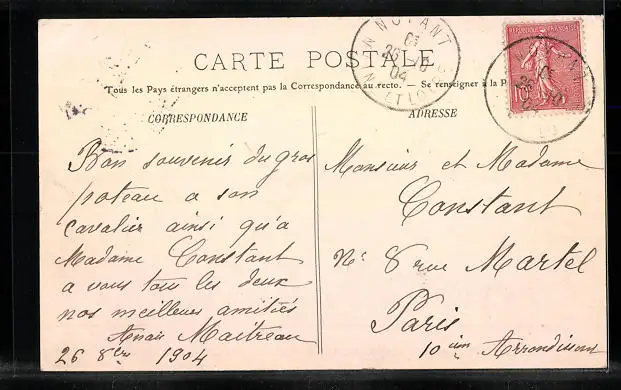 CARTE POSTALE
Tous les Pays étrangers n'acceptent pas la Correspondance au recto. — Se renseigner à la P
CORRESPONDANCE
ADRESSE
Bon souvenir du gros
poteau a son
cavalier ainsi qu'a
Madame Constant
a vous tous les deux
nos meilleurs amitiés
Anais Maitreau
26 8bre 1904
Monsieur et Madame
Constant
N° 8 rue Martel
Paris
10 iem Arrondissent
NOYANT
26
04
ET LOIRE
REPUBLIQUE FRANÇAISE